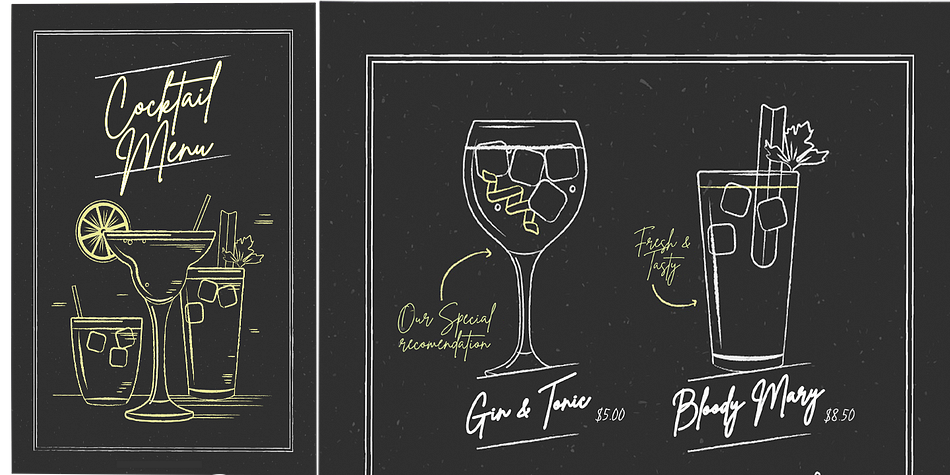 Cocktail
Menu
Our Special
recomendation
Gin & Tonic $5.00
Fresh &
Tasty
Bloody Mary $8.50